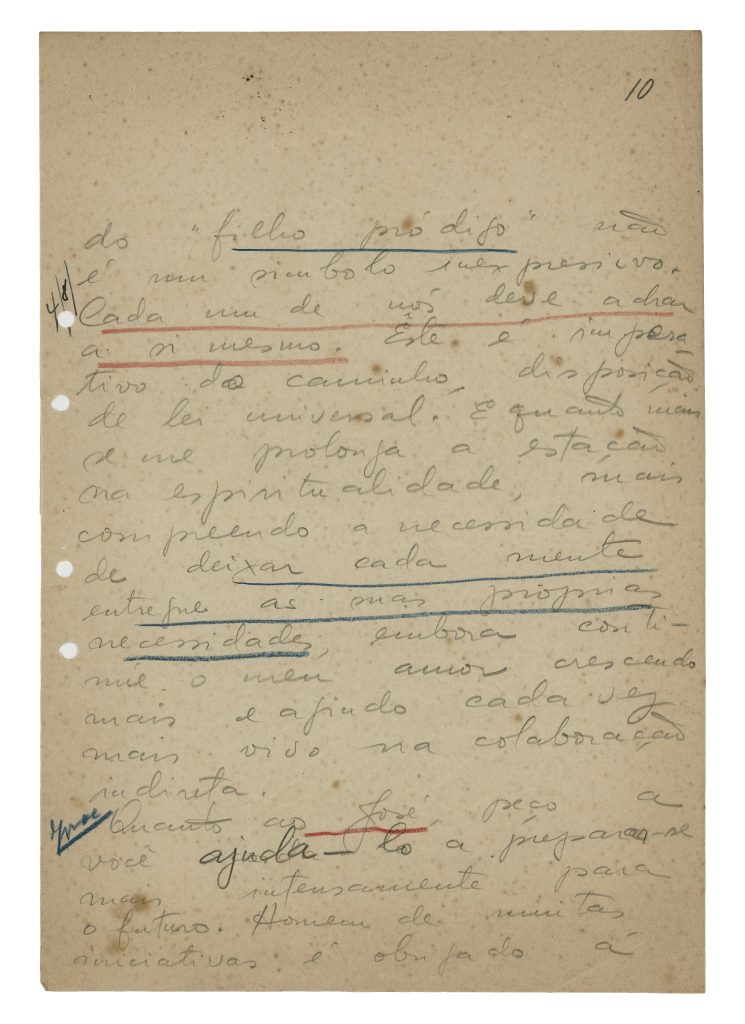 10
do "filho pródigo" não
é um simbolo inexpressivo.
4/8/
Cada um de nós deve achar
a si mesmo. Êste é impera-
tivo do caminho, disposição
de lei universal. E quanto mais
se me prolonga a estação
na espiritualidade, mais
compreendo a necessidade
de deixar cada mente
entregue ás suas próprias
necessidades, embora conti-
núe o meu amor crescendo
mais e agindo cada vez
mais vivo na colaboração
indireta.
Quanto ao José, peço a
você ajuda-lo a preparar-se
mais intensamente para
o futuro. Homem de muitas
iniciativas é obrigado á